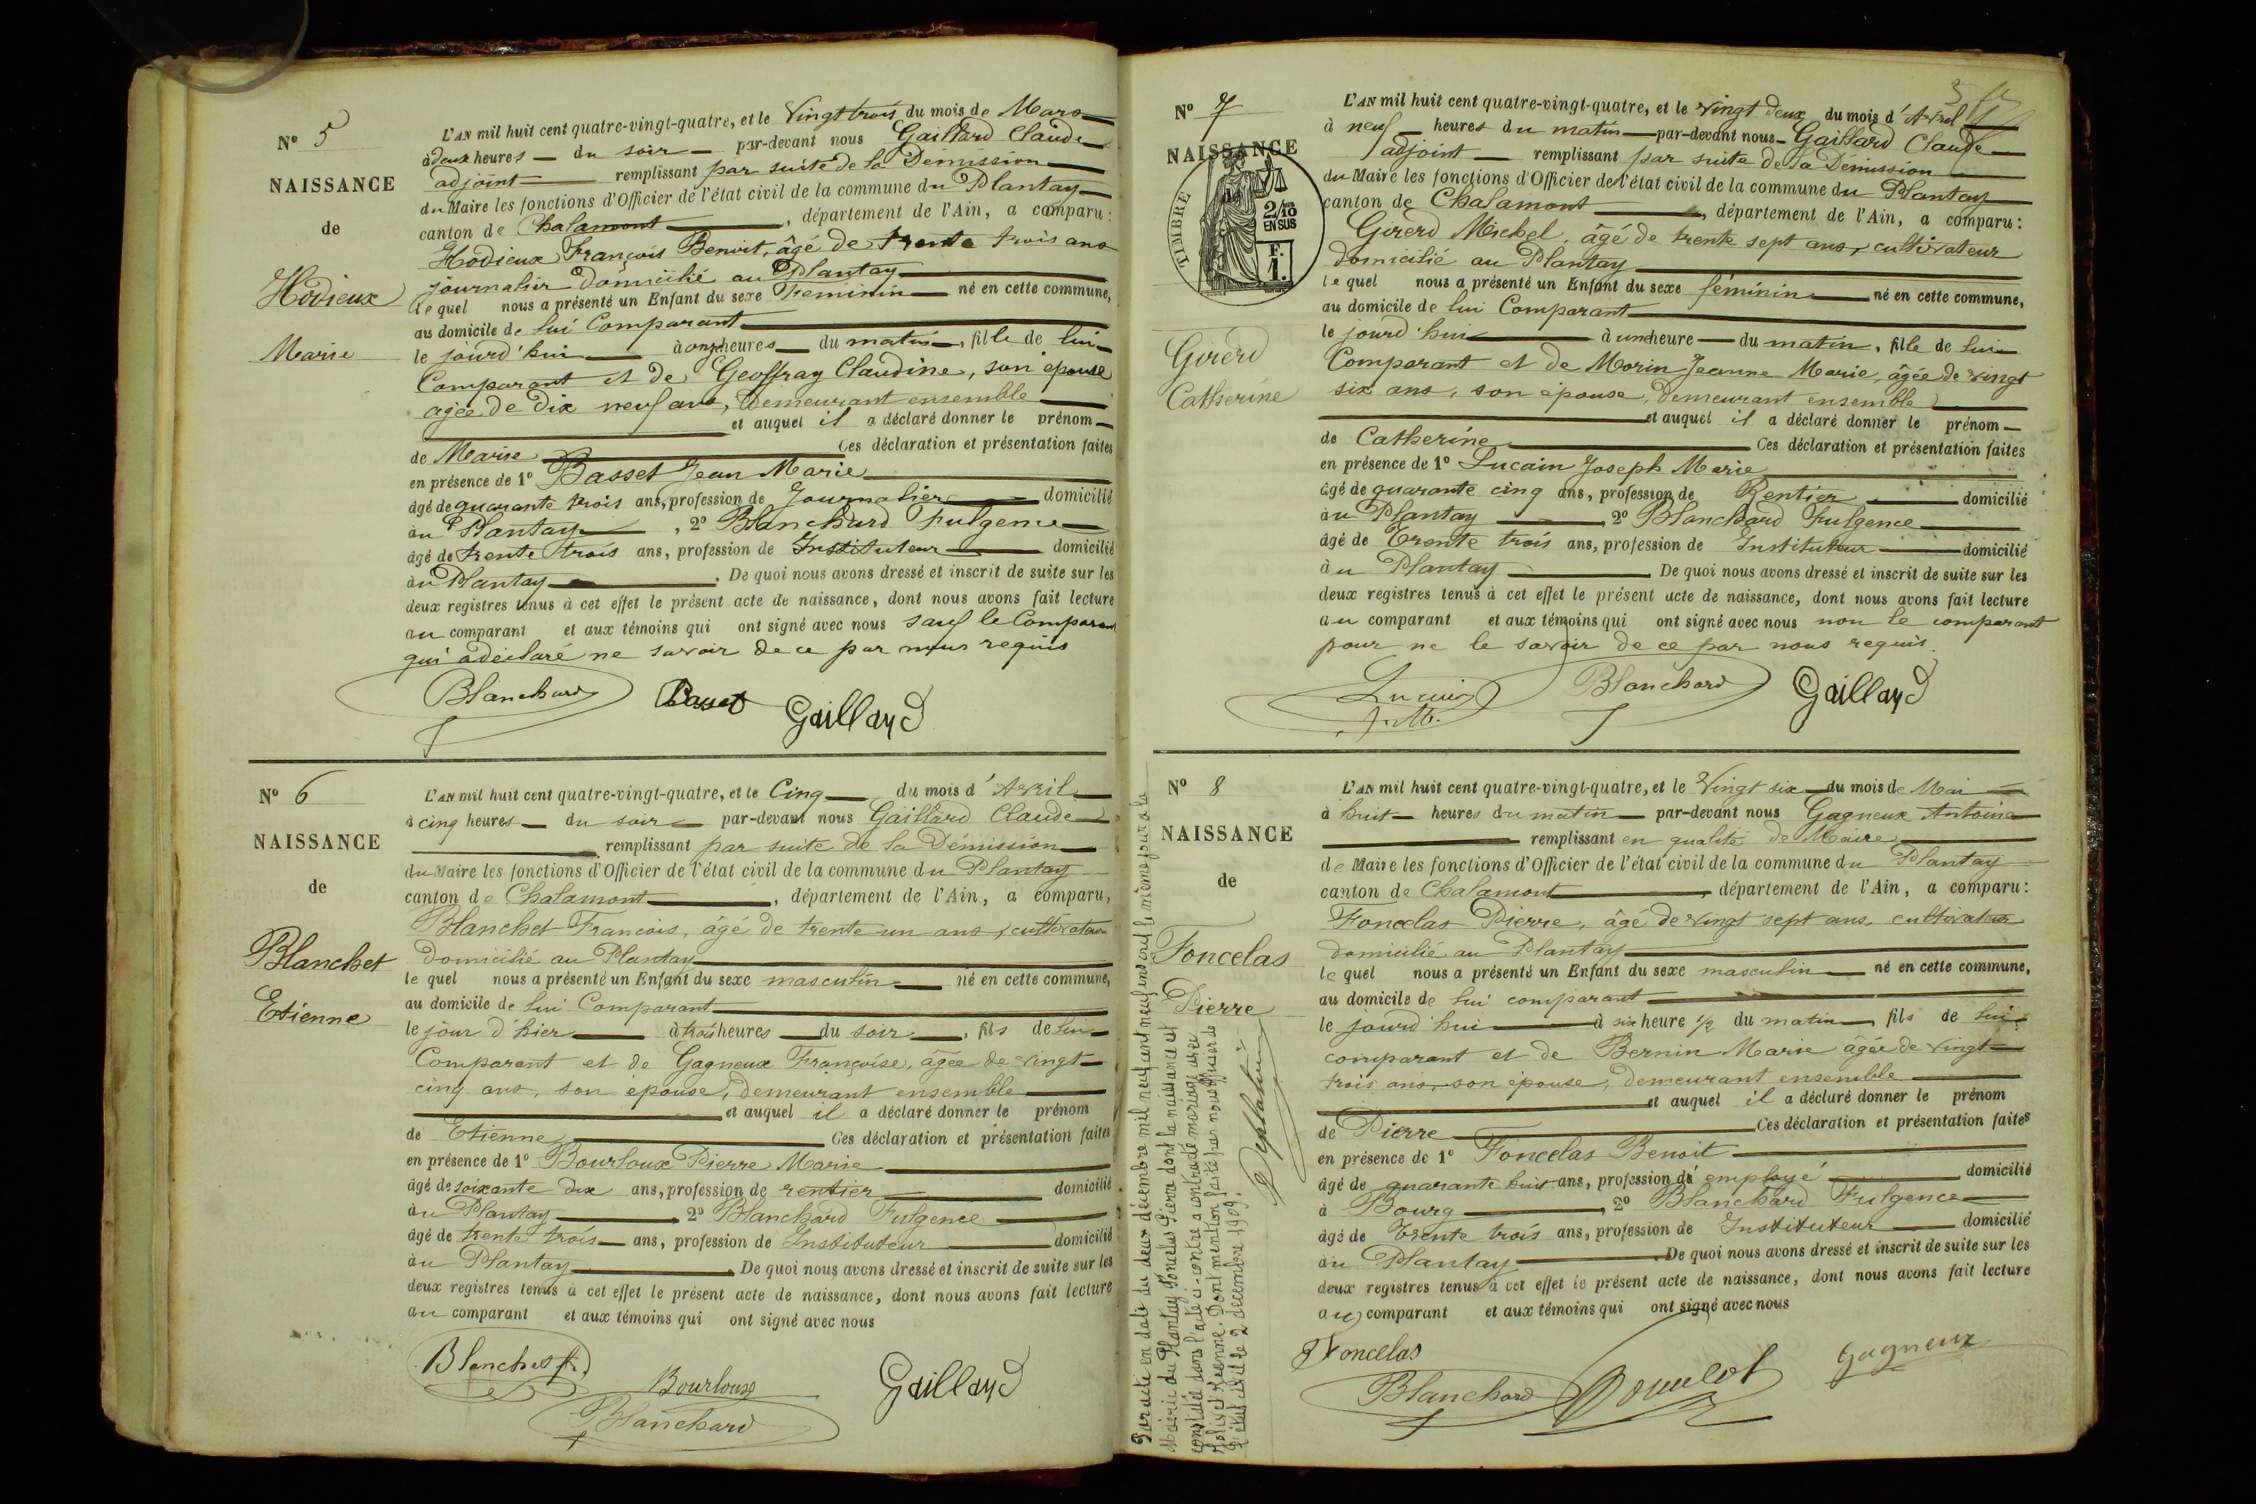 Nº 5
NAISSANCE
de
Hodieux
Marie
L'AN mil huit cent quatre-vingt-quatre, et le Vingt trois du mois de Mars
à deux heures du soir par-devant nous Gaillard Claude
adjoint remplissant par suite de la Démission
du Maire les fonctions d'Officier de l'état civil de la commune du Plantay
canton de Chalamont, département de l'Ain, a comparu:
Hodieux François Benoit, âgé de trente trois ans
journalier domicilié au Plantay
le quel nous a présenté un Enfant du sexe Feminin né en cette commune,
au domicile de lui Comparant
le jourd'hui à onze heures du matin, fille de lui
Comparant et de Geoffray Claudine, son épouse
agée de dix neuf ans, demeurant ensemble
et auquel il a déclaré donner le prénom
de Marie Ces déclaration et présentation faites
en présence de 1º Basset Jean Marie
âgé de quarante trois ans, profession de Journalier domicilié
au Plantay, 2º Blanchard Fulgence
âgé de trente trois ans, profession de Instituteur domicilié
au Plantay. De quoi nous avons dressé et inscrit de suite sur les
deux registres tenus à cet effet le présent acte de naissance, dont nous avons fait lecture
au comparant et aux témoins qui ont signé avec nous sauf le Comparant
qui a déclaré ne savoir de ce par nous requis
Blanchard Basset Gaillard
Nº 6
NAISSANCE
de
Blanchet
Etienne
L'AN mil huit cent quatre-vingt-quatre, et le Cinq du mois d'Avril
à cinq heures du soir par-devant nous Gaillard Claude
remplissant par suite de la Démission
du Maire les fonctions d'Officier de l'état civil de la commune du Plantay
canton de Chalamont, département de l'Ain, a comparu,
Blanchet François, âgé de trente un ans, cultivateur
domicilié au Plantay
le quel nous a présenté un Enfant du sexe masculin né en cette commune,
au domicile de lui Comparant
le jour d'hier à trois heures du soir, fils de lui
Comparant et de Gagneux Françoise, âgée de vingt
cinq ans, son épouse, demeurant ensemble
et auquel il a déclaré donner le prénom
de Etienne Ces déclaration et présentation faites
en présence de 1º Bourloux Pierre Marie
âgé de soixante dix ans, profession de rentier domicilié
au Plantay 2º Blanchard Fulgence
âgé de trente trois ans, profession de Instituteur domicilié
au Plantay. De quoi nous avons dressé et inscrit de suite sur les
deux registres tenus à cet effet le présent acte de naissance, dont nous avons fait lecture
au comparant et aux témoins qui ont signé avec nous
Blanchet Bourloux Gaillard
Blanchard
Nº 7
NAISSANCE
de
TIMBRE
2/10 EN SUS
F. 1.
Girerd
Catherine
L'AN mil huit cent quatre-vingt-quatre, et le vingt deux du mois d'Avril
à neuf heures du matin par-devant nous Gaillard Claude
adjoint remplissant par suite de la Démission
du Maire les fonctions d'Officier de l'état civil de la commune du Plantay
canton de Chalamont, département de l'Ain, a comparu:
Girerd Michel, âgé de trente sept ans, cultivateur
domicilié au Plantay
le quel nous a présenté un Enfant du sexe féminin né en cette commune,
au domicile de lui Comparant
le jourd'hui à une heure du matin, fille de lui
Comparant et de Morin Jeanne Marie, âgée de vingt
six ans, son épouse, demeurant ensemble
et auquel il a déclaré donner le prénom
de Catherine Ces déclaration et présentation faites
en présence de 1º Lucain Joseph Marie
âgé de quarante cinq ans, profession de Rentier domicilié
au Plantay 2º Blanchard Fulgence
âgé de Trente trois ans, profession de Instituteur domicilié
au Plantay. De quoi nous avons dressé et inscrit de suite sur les
deux registres tenus à cet effet le présent acte de naissance, dont nous avons fait lecture
au comparant et aux témoins qui ont signé avec nous non le comparant
pour ne le savoir de ce par nous requis.
Lucain J. M. Blanchard Gaillard
Nº 8
NAISSANCE
de
Foncelas
Pierre
Par acte en date du deux décembre mil neuf cent neuf inscrit le même jour à la
Mairie du Plantay Foncelas Pierre dont la naissance est
constatée dans l'acte ci-contre a contracté mariage avec
Jolivet . Dont mention faite par nous officier de
l'état civil le 2 décembre 1909.
L'AN mil huit cent quatre-vingt-quatre, et le Vingt six du mois de Mai
à huit heures du matin par-devant nous Gagneux Antoine
remplissant en qualité de Maire
de Maire les fonctions d'Officier de l'état civil de la commune du Plantay
canton de Chalamont, département de l'Ain, a comparu:
Foncelas Pierre, âgé de vingt sept ans, cultivateur
domicilié au Plantay
le quel nous a présenté un Enfant du sexe masculin né en cette commune,
au domicile de lui comparant
le jourd'hui à six heure 1/2 du matin, fils de lui
comparant et de Bernin Marie âgée de vingt
trois ans, son épouse, demeurant ensemble
et auquel il a déclaré donner le prénom
de Pierre Ces déclaration et présentation faites
en présence de 1º Foncelas Benoit
âgé de quarante huit ans, profession d'employé domicilié
à Bourg, 2º Blanchard Fulgence
âgé de Trente trois ans, profession de Instituteur domicilié
au Plantay. De quoi nous avons dressé et inscrit de suite sur les
deux registres tenus à cet effet le présent acte de naissance, dont nous avons fait lecture
au comparant et aux témoins qui ont signé avec nous
Foncelas Gagneux
Blanchard